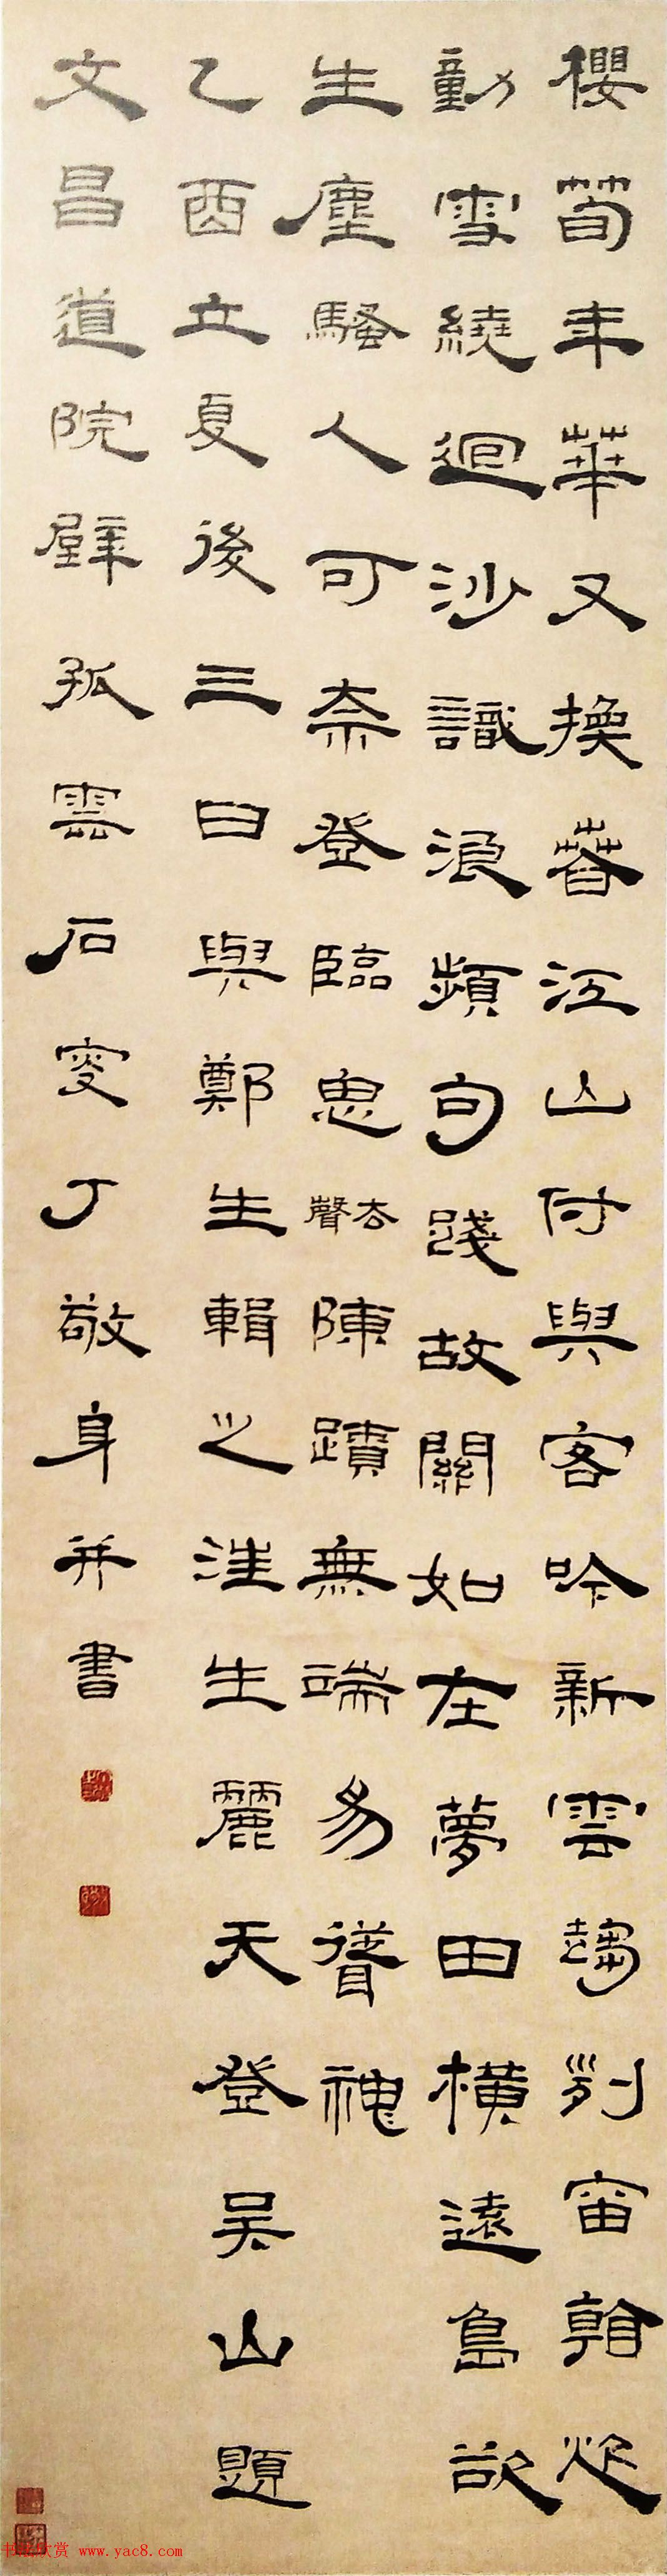 櫻筍年華又換萅江山付與客吟新雲趨列宙朝
動雪繞迴沙識浪頻句踐故關如在夢田橫遠島欲
生塵騷人可奈登臨思去聲陳蹟無端易
乙酉立夏後三日與鄭生輯之汪生麗天登吳山題
文昌道院壁孤雲石叟丁敬身并書
书法欣赏 www.yac8.com